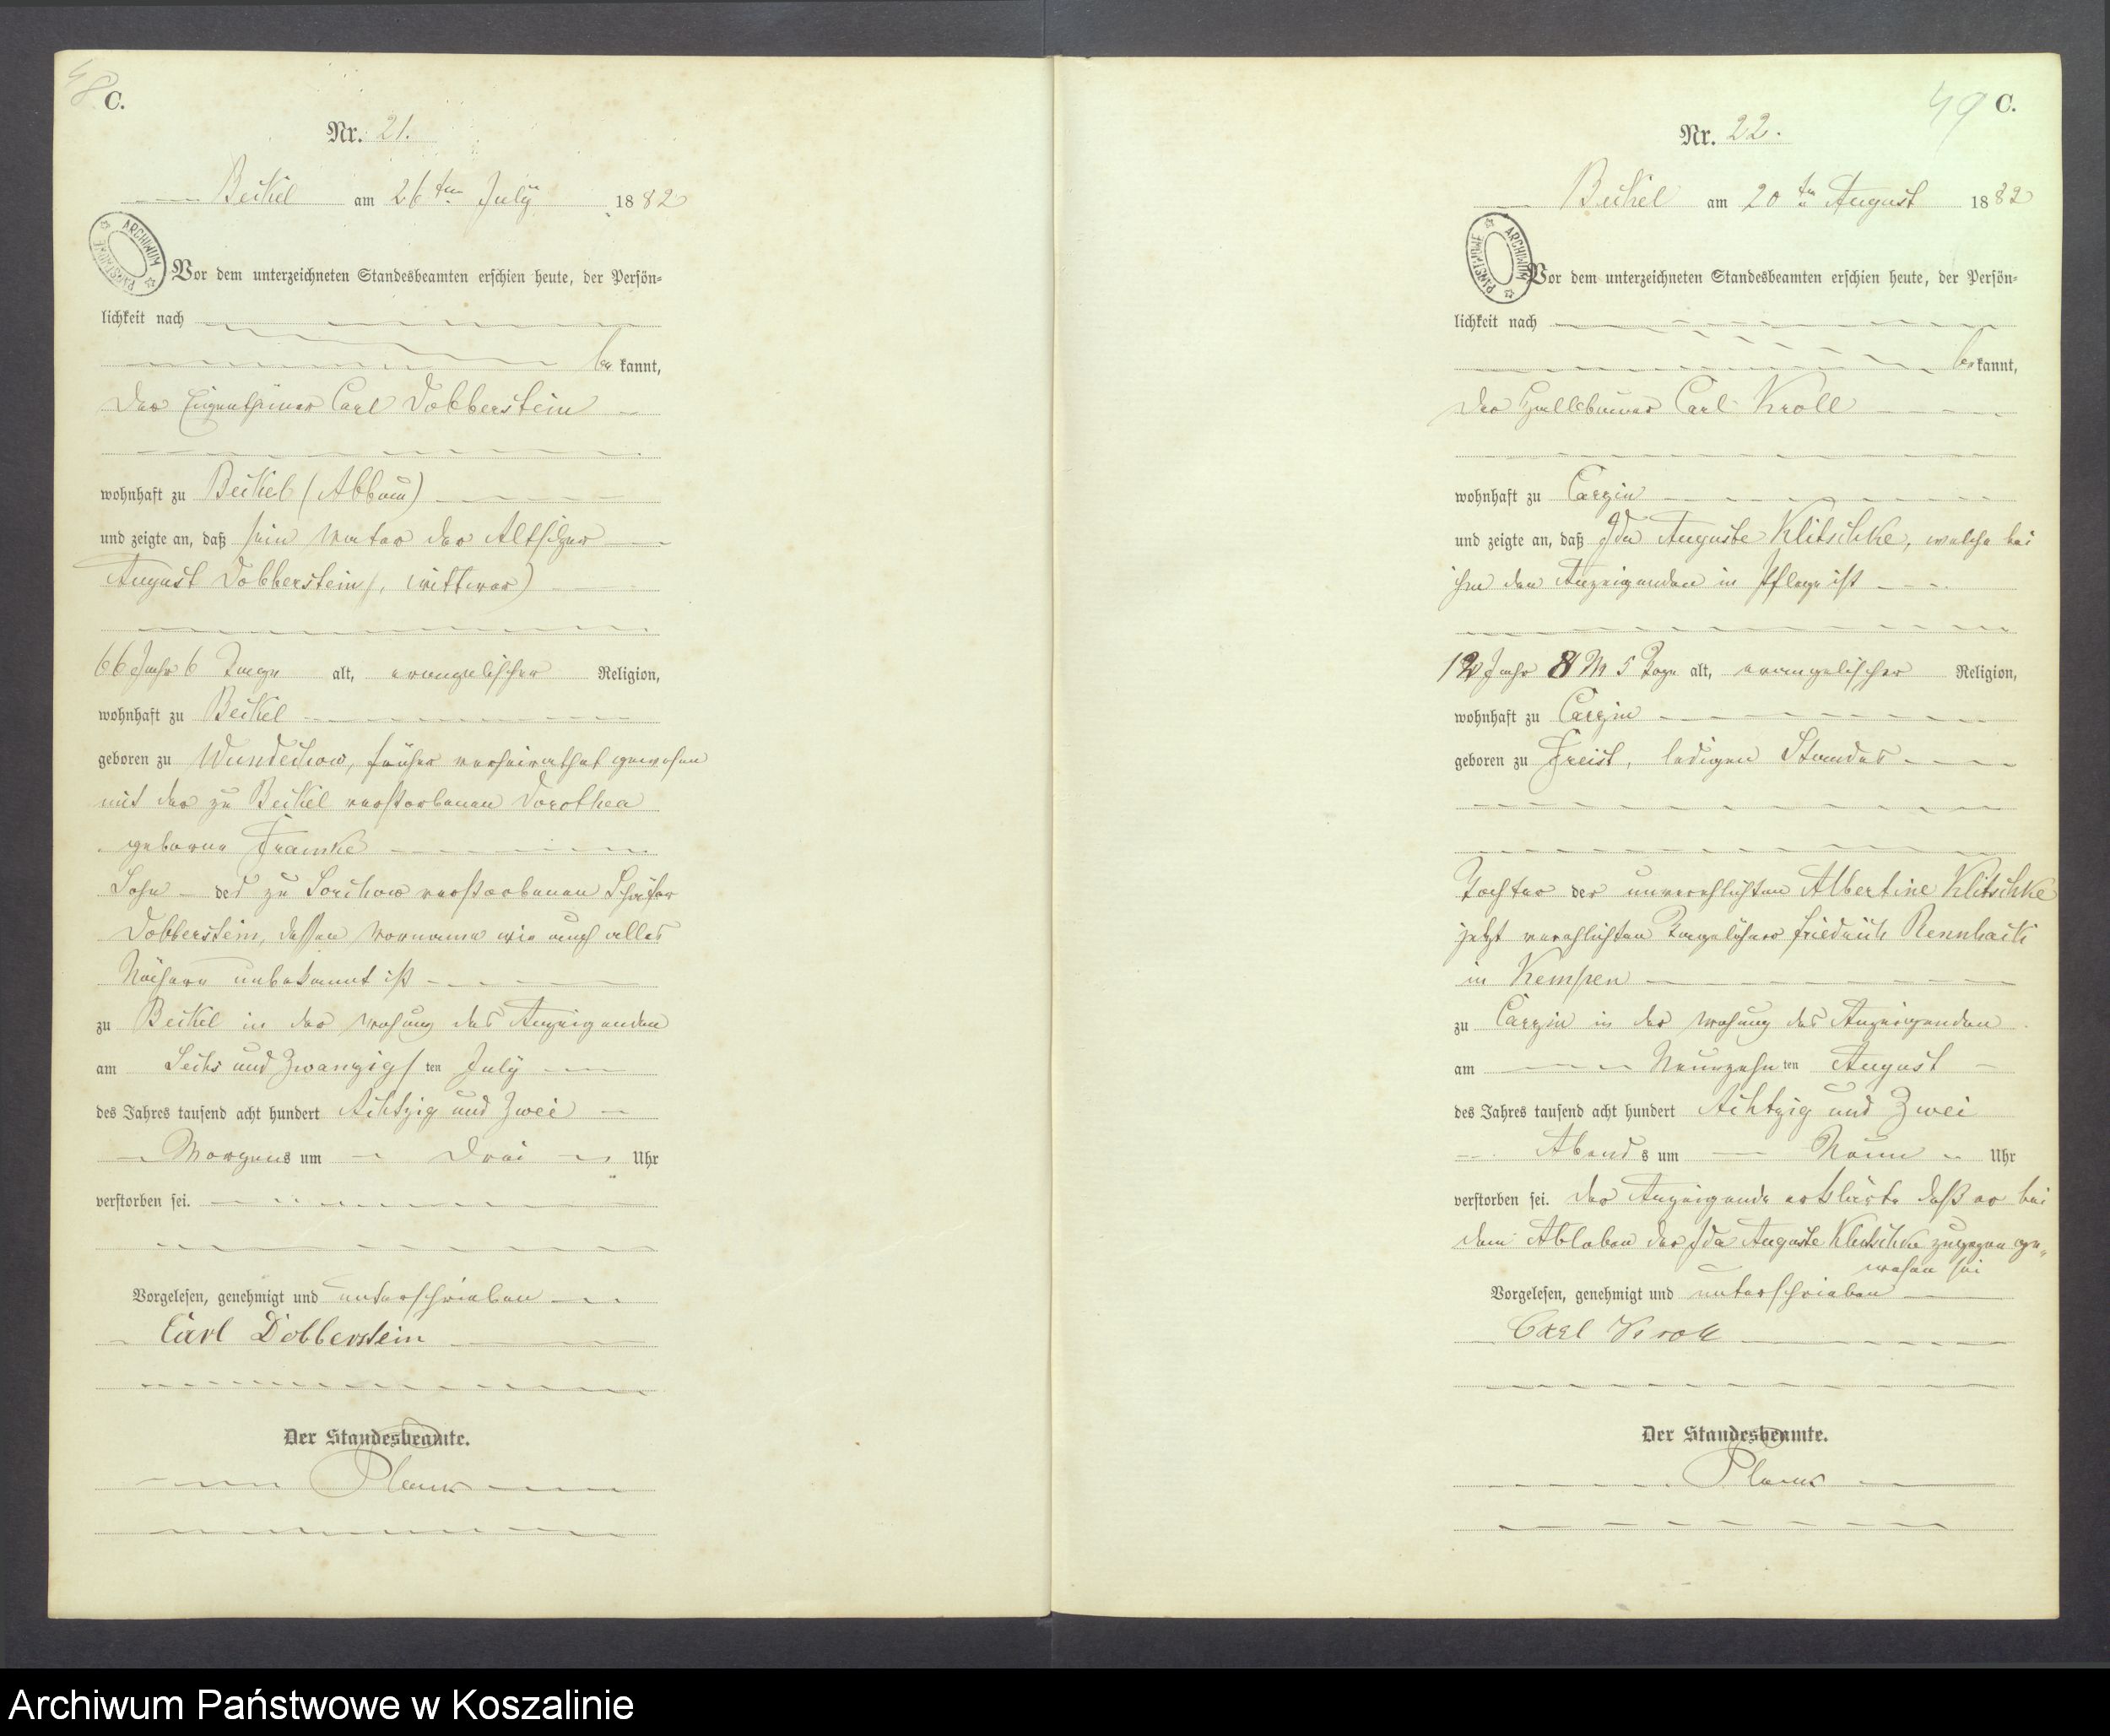 48 C.
Nr. 21.
Beikel am 26ten July 1882
ARCHIWUM PAŃSTWOWE
Vor dem unterzeichneten Standesbeamten erschien heute, der Persön-
lichkeit nach
be kannt,
der Eigenthümer Carl Dobberstein
wohnhaft zu Beikel (Abbau)
und zeigte an, daß sein Vater der Altsitzer
August Dobberstein (, Wittwer)
66 Jahr 6 Tage alt, evangelischer Religion,
wohnhaft zu Beikel
geboren zu Wundichow, früher verheirathet gewesen
mit der zu Beikel verstorbenen Dorothea
geborne Framke
Sohn des zu Sorchow verstorbenen Schäfer
Dobberstein, dessen Vorname wie auch alles
Nähere unbekannt ist
zu Beikel in der Wohung des Anzeigenden
am Sechs und Zwanzigs ten July
des Jahres tausend acht hundert Achtzig und Zwei
Morgens um Drei Uhr
verstorben sei.
Vorgelesen, genehmigt und unterschrieben
Carl Dobberstein
Der Standesbeamte.
49 C.
Nr. 22.
Beikel am 20ten August 1882
ARCHIWUM PAŃSTWOWE
Vor dem unterzeichneten Standesbeamten erschien heute, der Persön-
lichkeit nach
be kannt,
der Halbbauer Carl Kroll
wohnhaft zu Carzin
und zeigte an, daß Ida Auguste Klitschke, welche bei
ihm den Anzeigenden in Pflege ist
12 Jahr 8 M 5 Tage alt, evangelischer Religion,
wohnhaft zu Carzin
geboren zu Freist, ledigen Standes
Tochter der unverehlichten Albertine Klitschke
jetzt verehlichten Tagelöhner Friedrich
in Kempen
zu Carzin in der Wohung des Anzeigenden
am Neunzehn ten August
des Jahres tausend acht hundert Achtzig und Zwei
Abends um Neun Uhr
verstorben sei. Der Anzeigende erklärte daß er bei
dem Ableben der Ida Auguste Klitschke zugegen ge„
wesen sei
Vorgelesen, genehmigt und unterschrieben
Carl Kroll
Der Standesbeamte.
Archiwum Państwowe w Koszalinie